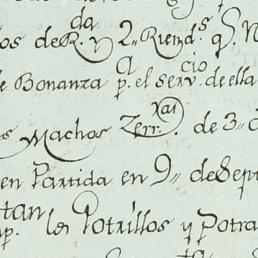 os de R.da y 2„ Riend.s q.e N
e Bonanza p.a el serv.cio de ella
s Machos Zerr.xas de 3
en Partida en 9„ de Sep
tan
p. los Potrillos y Potra